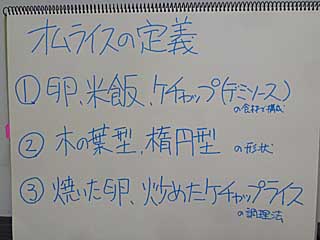 オムライスの定義
① 卵、米飯、ケチャップ(デミソース)
の食材で構成
② 木の葉型、楕円型 の形状
③ 焼いた卵、炒めたケチャップライス
の調理法